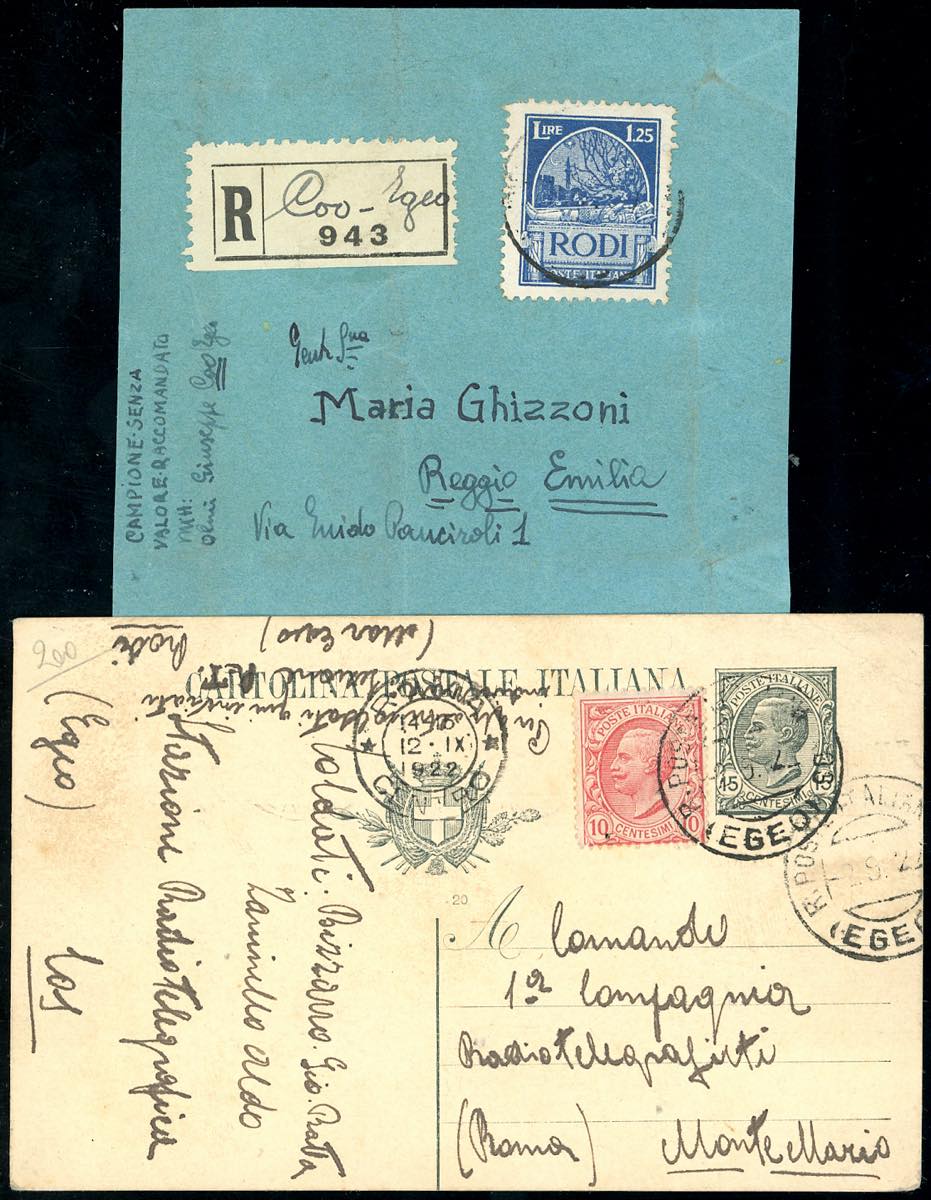 LIRE 1.25
RODI
POSTE ITALIANE
R
Coo - Egeo
943
Gent. Sig.na
Maria Ghizzoni
Reggio Emilia
Via Guido Panciroli 1
CAMPIONE SENZA
VALORE RACCOMANDATO
MITT:
Olmi Giuseppe Coo Egeo
200
CARTOLINA POSTALE ITALIANA
Rodi
(Mar Egeo)
ROMA
12·IX
1922
CENTRO
POSTE ITALIANE
10 CENTESIMI 10
POSTE ITALIANE
15 CENTESIMI 15
R. POSTE ITALIANE
(EGEO)
R. POSTE ITALIANE
2.9.22
(EGEO)
20
A Comando
1a Compagnia
Radiotelegrafisti
(Roma) Monte Mario
Soldati. Bizzarro. Gio. Batta
Zaninello Aldo
Stazione Radiotelegrafica
(Egeo) Cos